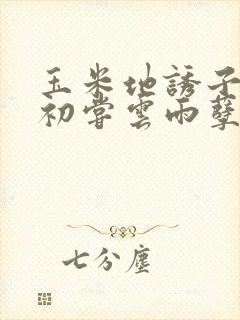 玉米地誘子
初嘗雲雨孽
七分塵